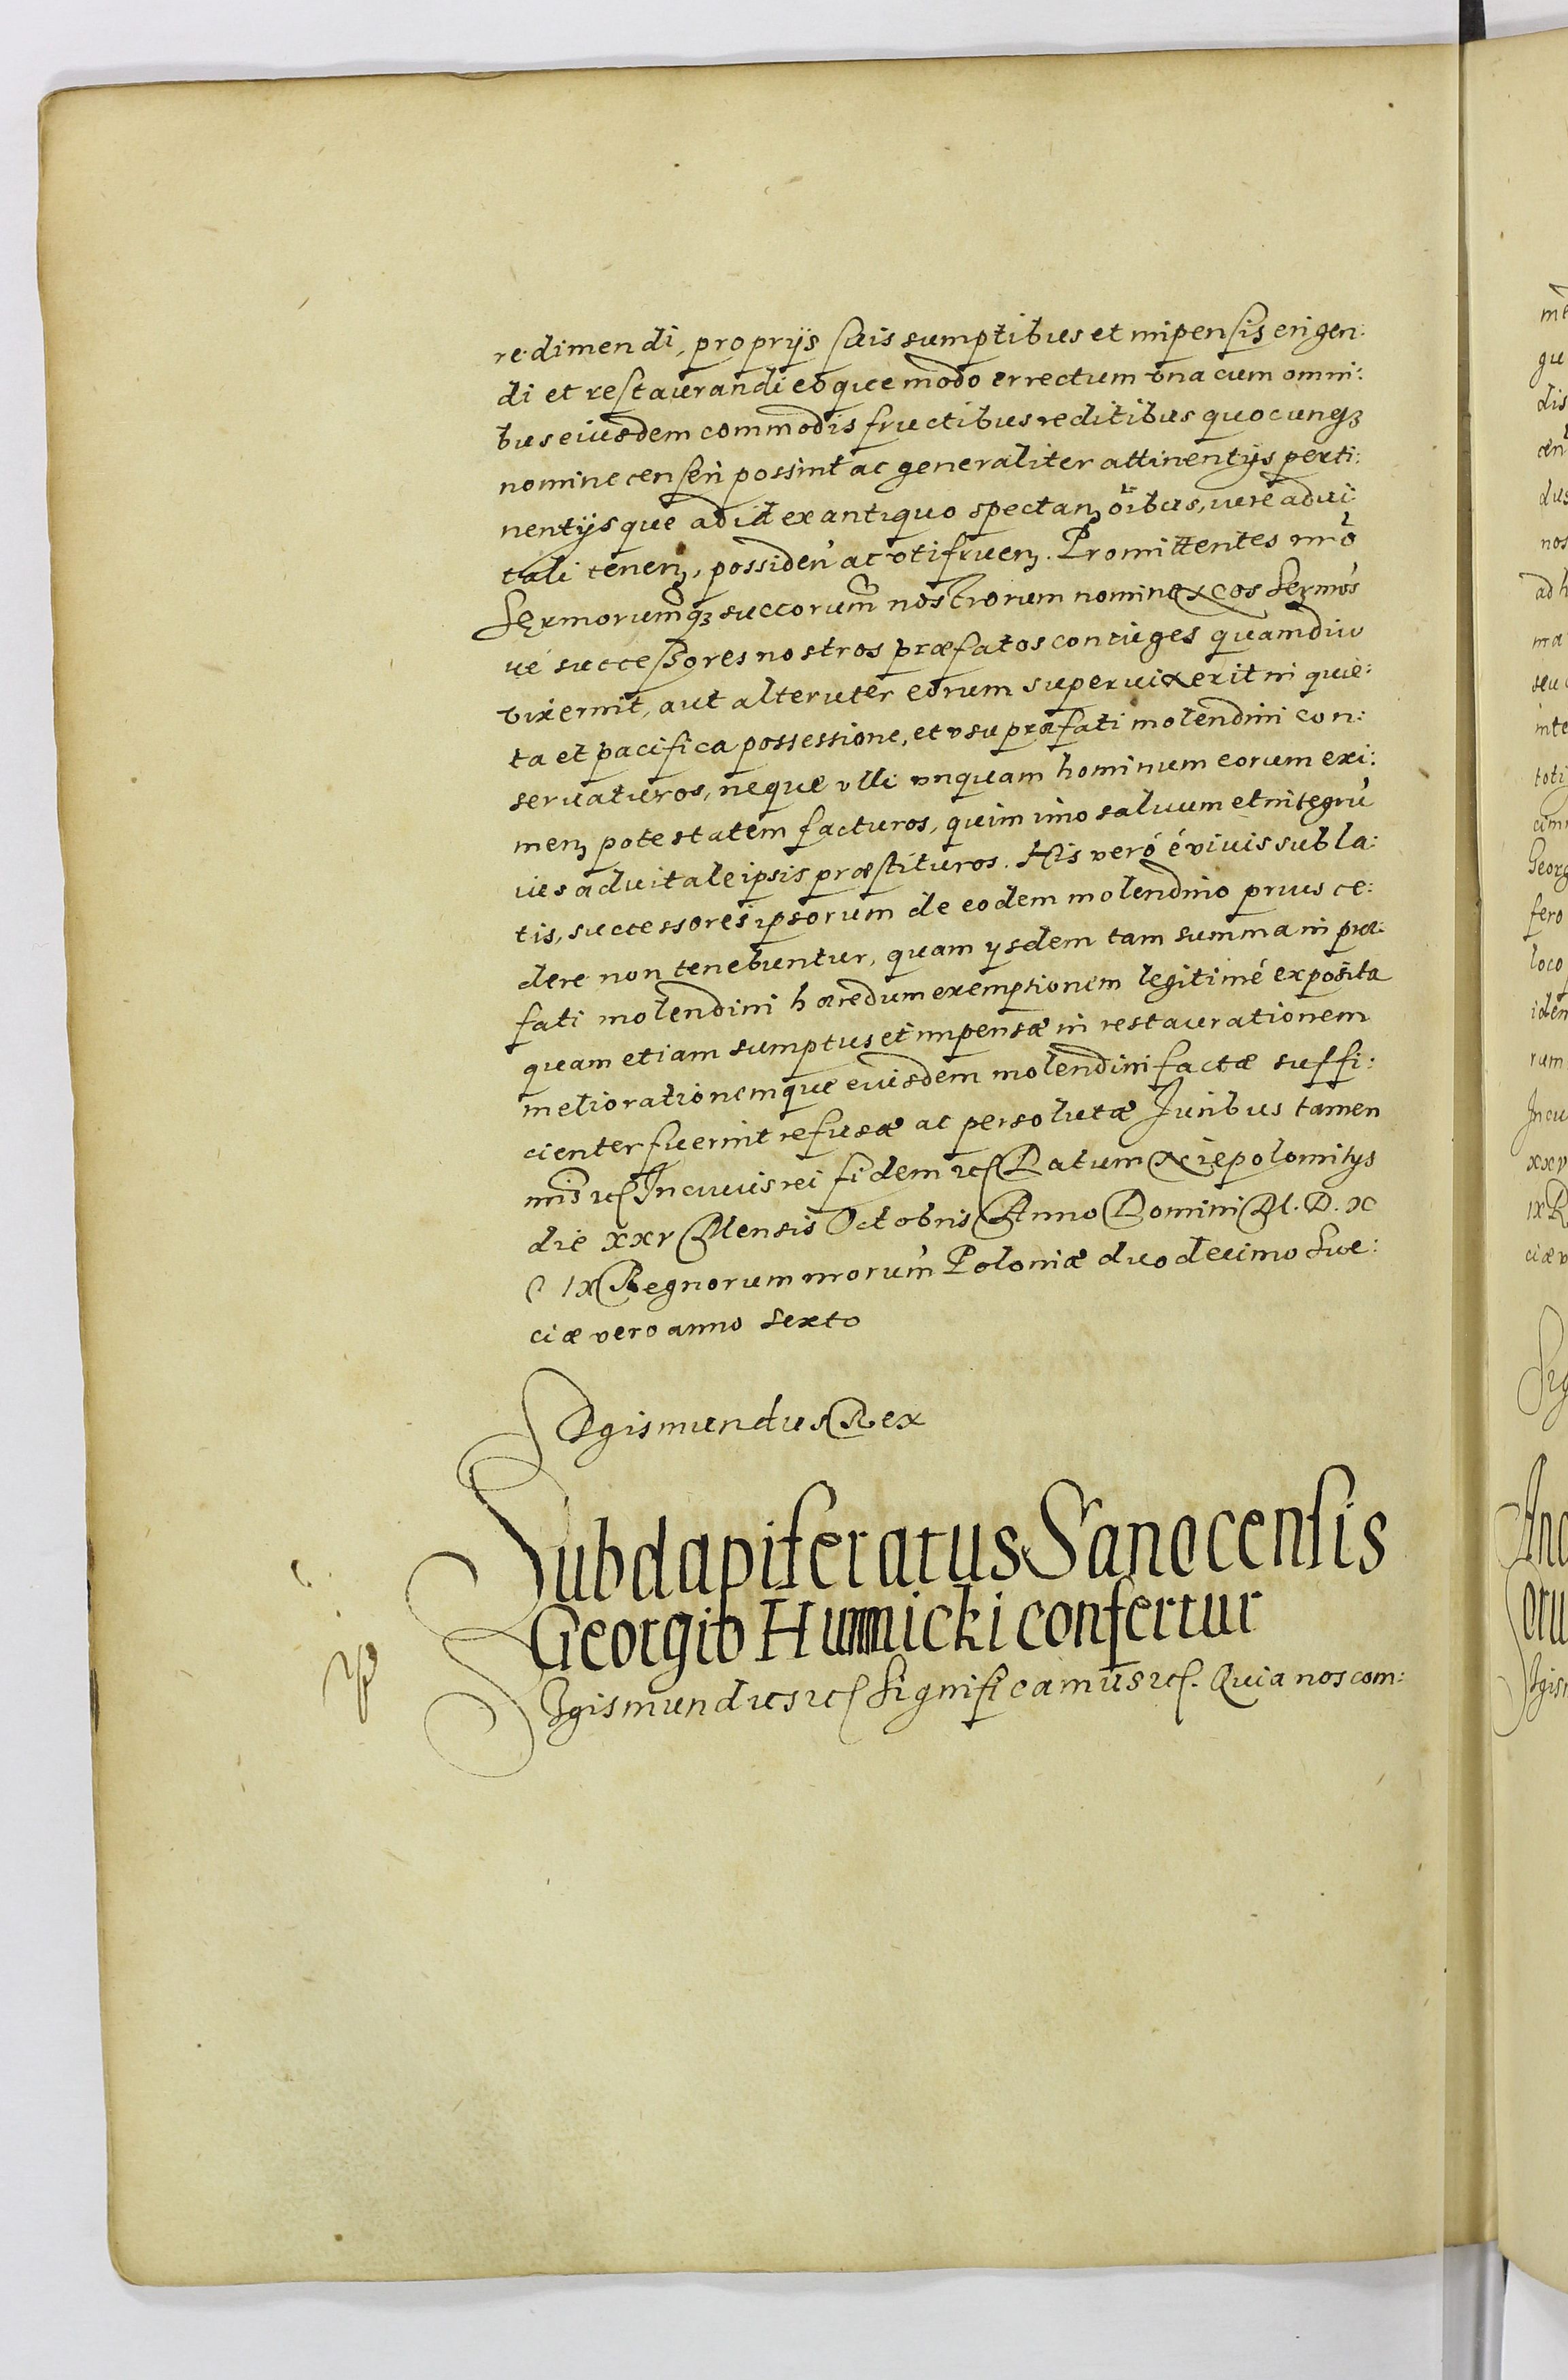 redimendi, proprijs suis sumptibus et impensis erigen:
di et restaurandi eoque modo errectum vna cum omni:
bus eiusdem commodis fructibus reditibus quocunq3
nomine censeri possint ac generaliter attinentijs perti:
nentijsque ad id ex antiquo spectan3 oibus, iure adui:
tali tenen3, possiden̄ ac vtifruen3. Promittentes nr̄o
Sermorumq3 succorum̄ nostrorum nomine Nos Sermos
ué successores nostros præfatos coniuges quamdiu
vixerint, aut alteruter eorum superuixerit in quie:
ta et pacifica possessione, et vsu præfati molendini con:
seruaturos, neque vlli vnquam hominum eorum exi:
men3 potestatem facturos, quin imo saluum et integrū
ius aduitale ipsis præstituros. His veró é viuis subla:
tis, successores ipsorum de eodem molendino prius ce:
dere non tenebuntur, quam ysdem tam summa in præ:
fati molendini hæredum exemptionem legitimé exposita
quam etiam sumptus et impensæ in restaurationem
meliorationemque eiusdem molendini factæ suffi:
cienter fuerint refusæ ac persolutæ Iuribus tamen
nr̄is etc. In cuius rei fidem etc. Datum Niepolomitijs
die XXV Mensis Octobris Anno Domini M. D. X
C IX Regnorum nrorum̄ Poloniæ duodecimo Sue:
ciæ vero anno sexto
Sigismundus Rex
Subdapiferatus Sanocensis
Georgio Humnicki confertur
Sigismundus etc. Significamus etc. Quia nos com: